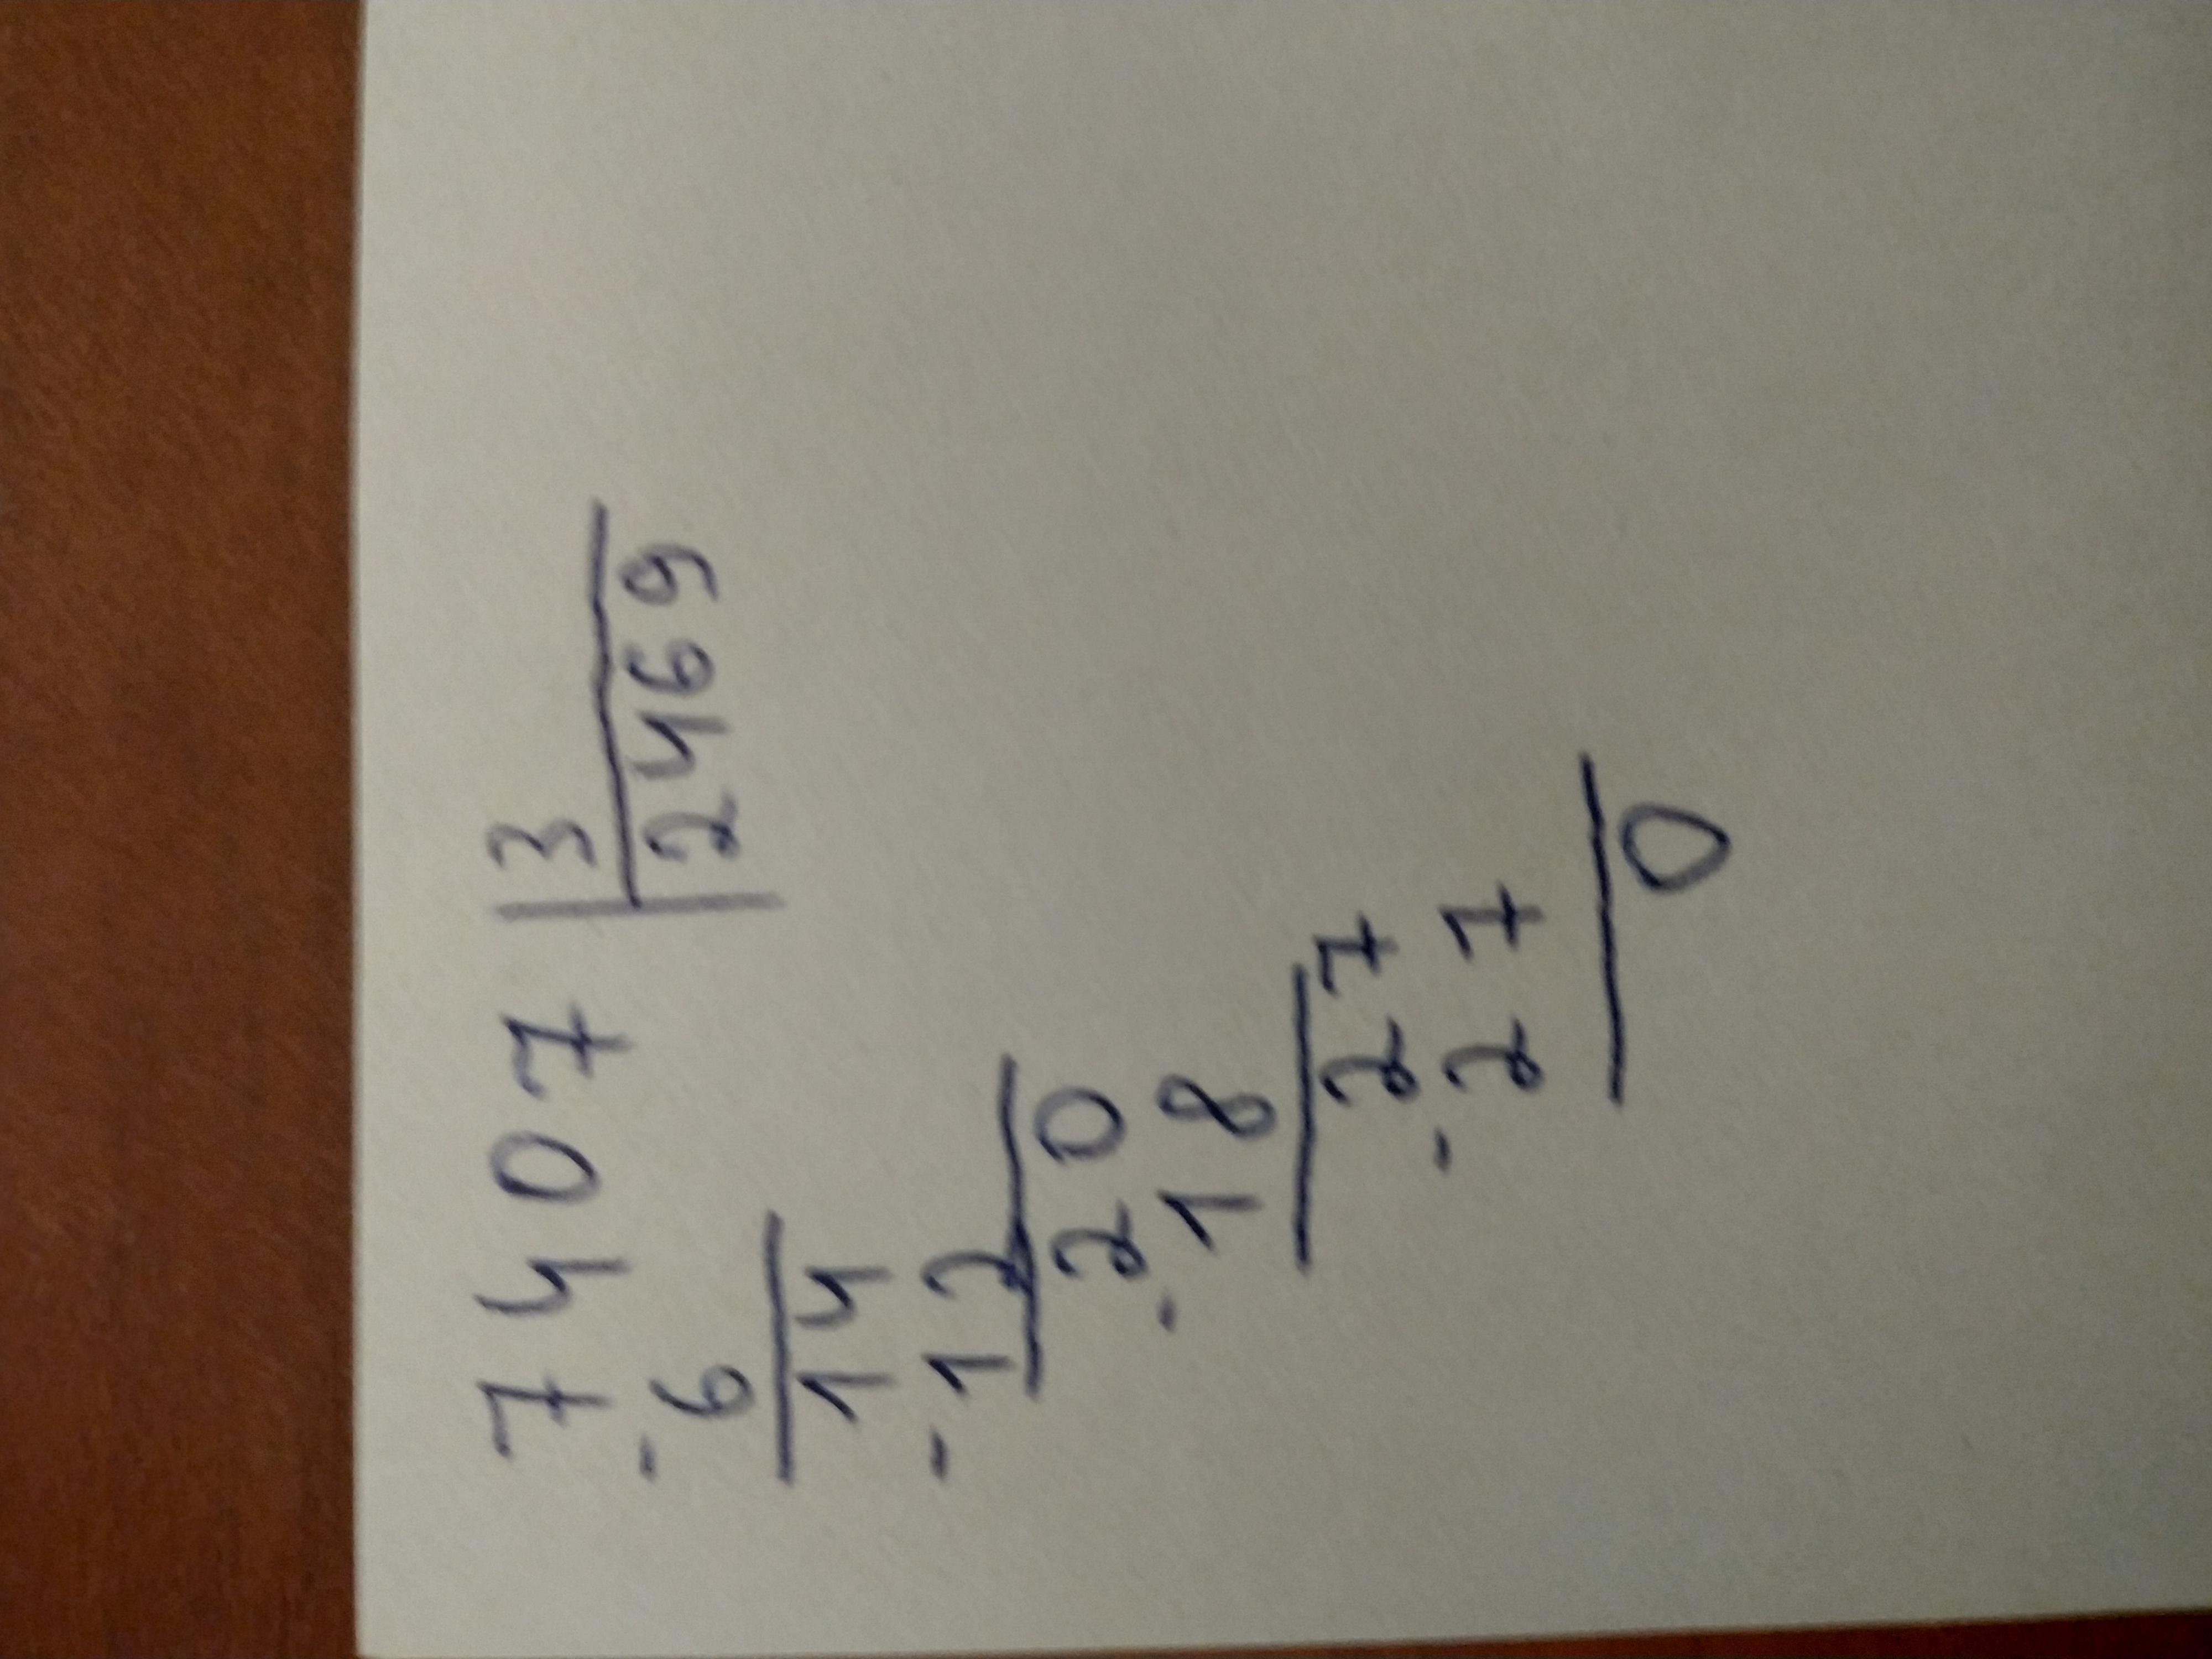 7407 | 3
- 6 | 2469
14
- 12
20
- 18
27
- 27
0